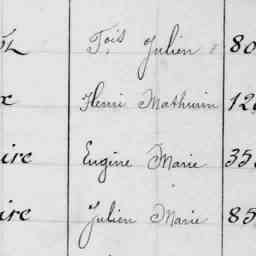 Fois Julien 80
Henri Mathurin 12
ire Eugène Marie 35
ire Julien Marie 85